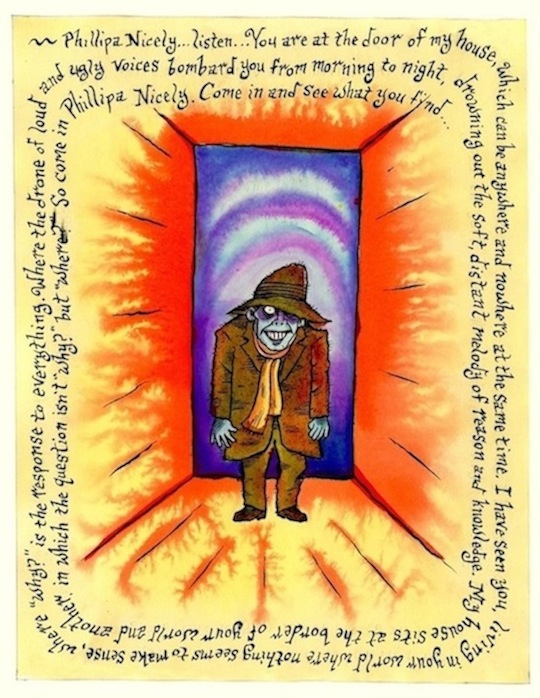 ~ Phillipa Nicely... listen... You are at the door of my house,
which can be anywhere and nowhere at the same time. I have seen you
living in your world where nothing seems to make sense,
where "why?" is the response to everything. Where the drone of loud
and ugly voices bombard you from morning to night,
drowning out the soft, distant melody of reason and knowledge. My
house sits at the border of your world and another,
in which the question isn't "why?" but "where?" So come in
Phillipa Nicely. Come in and see what you find...